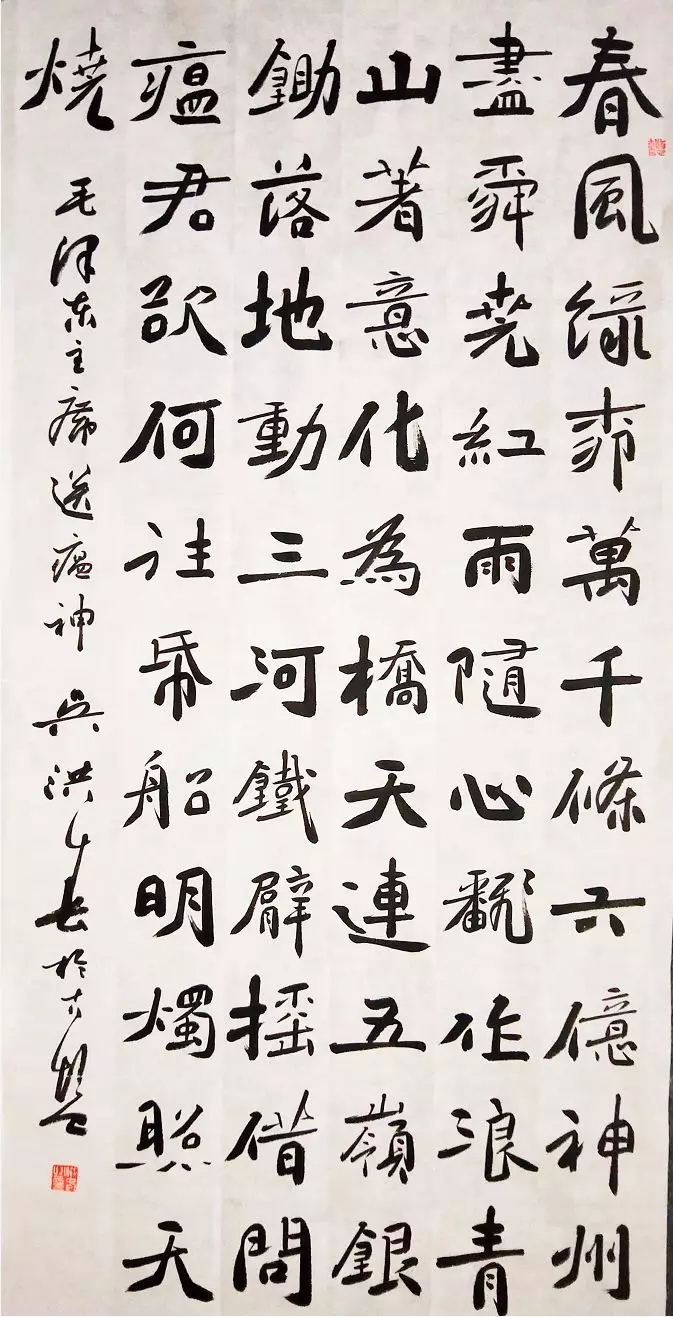 春風綠柳萬千條六億神州
盡舜堯紅雨隨心飜作浪青
山著意化為橋天連五嶺銀
鋤落地動三河鐵臂搖借問
瘟君欲何往帋船明燭照天
燒
毛泽东主席送瘟神 吳洪生書於古